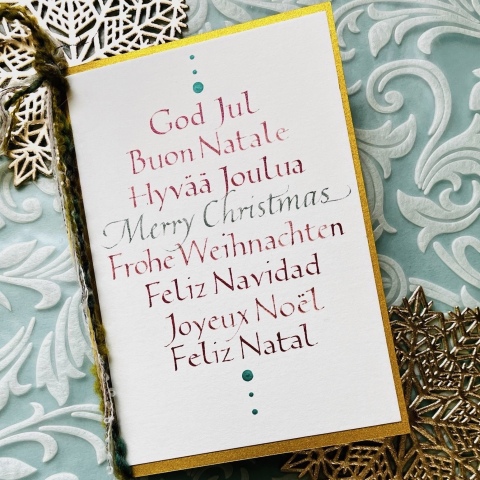 God Jul
Buon Natale
Hyvää Joulua
Merry Christmas
Frohe Weihnachten
Feliz Navidad
Joyeux Noël
Feliz Natal